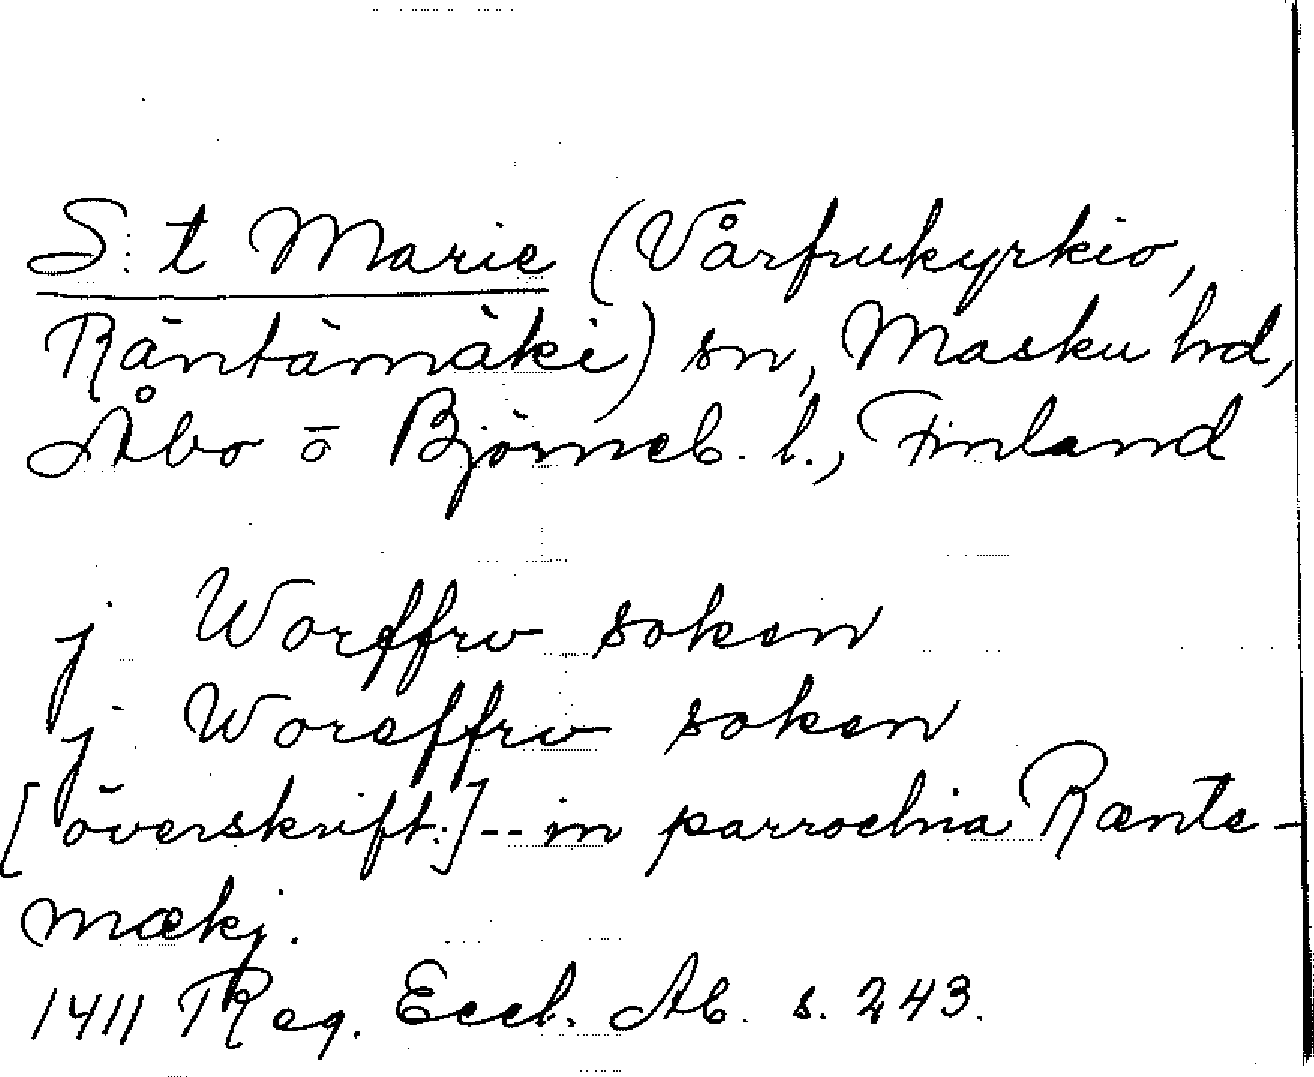 S:t Marie (Vårfrukyrkio,
Räntämäki) sn, Masku hd,
Åbo o Björneb. l., Finland
j Worffrv soken
j Woreffrv soken
[överskrift:] -- in parrochia Rænte-
mækj.
1411 Reg. Eccl. Ab. s. 243.